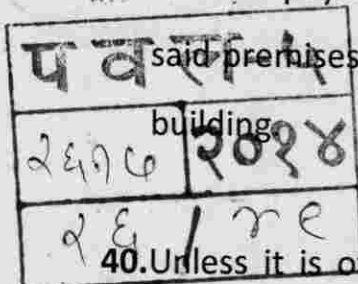 प व ल
said premises
building
२६१७ २०१४
२६ / ४९
40.Unless it is